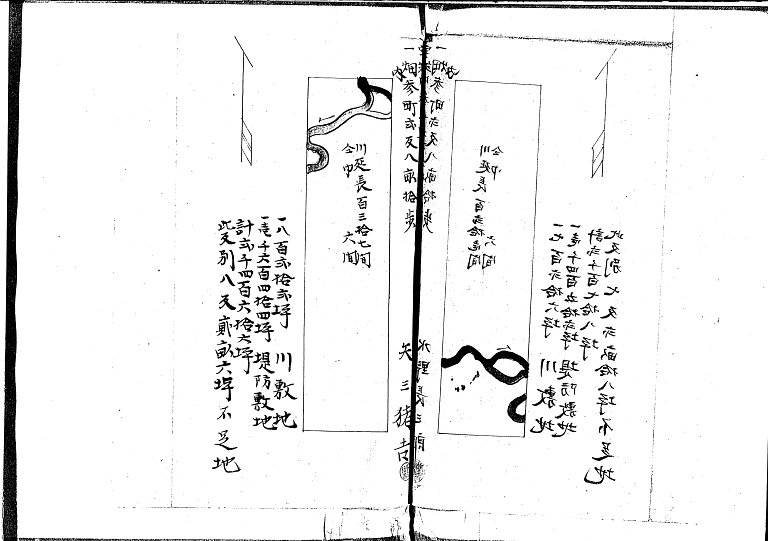 川延長百弐拾壱間
仝巾 六間
一七百弐拾六坪 川敷地
一壱千四百五拾弐坪 堤防敷地
計弐千百七拾八坪
此反別七反弐畝拾八坪不足地
参町弐反八畝拾歩
矢三猪吉
川延長百三拾七間
仝巾 六間
一八百弐拾弐坪 川敷地
一壱千六百四拾四坪 堤防敷地
計弐千四百六拾六坪
此反別八反弐畝六坪不足地